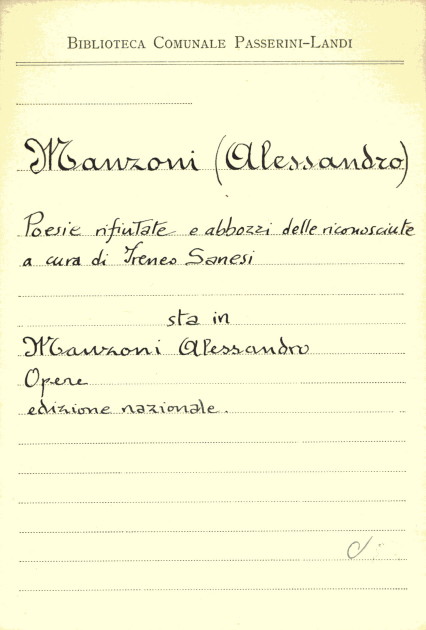 BIBLIOTECA COMUNALE PASSERINI-LANDI
Manzoni (Alessandro)
Poesie rifiutate e abbozzi delle riconosciute
a cura di Ireneo Sanesi
sta in
Manzoni Alessandro
Opere
edizione nazionale.